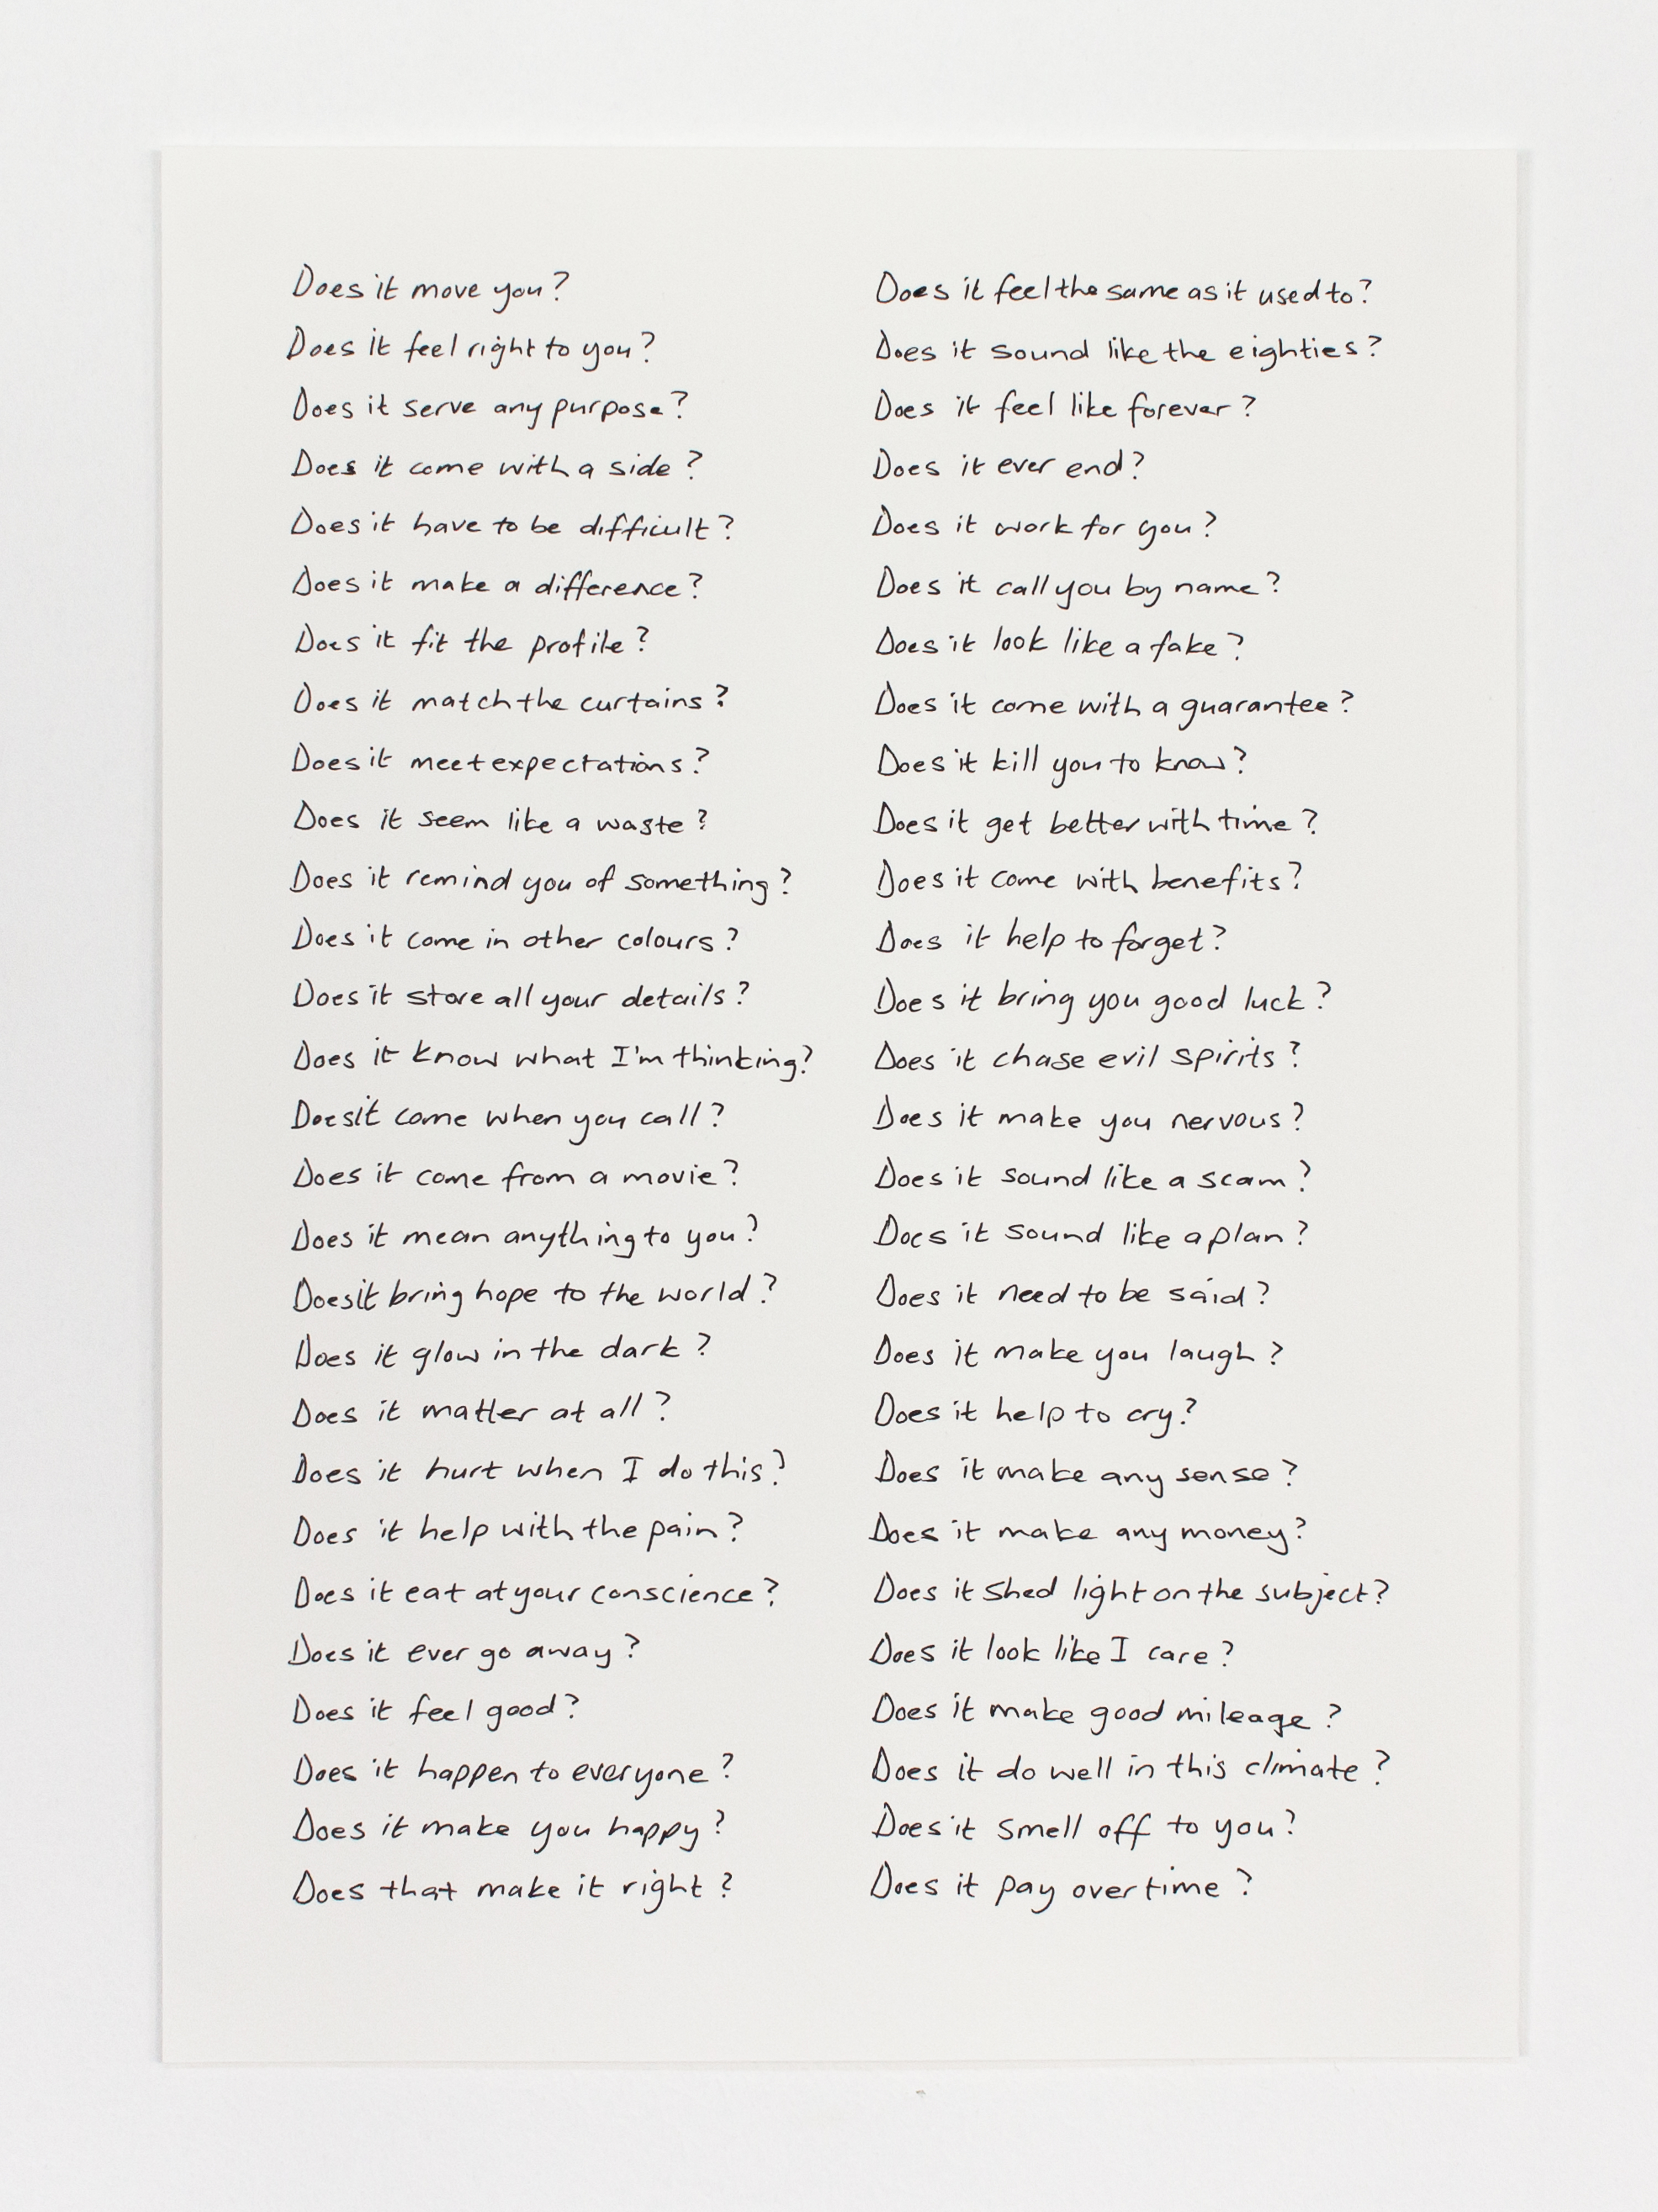 Does it move you?
Does it feel right to you?
Does it serve any purpose?
Does it come with a side?
Does it have to be difficult?
Does it make a difference?
Does it fit the profile?
Does it match the curtains?
Does it meet expectations?
Does it seem like a waste?
Does it remind you of something?
Does it come in other colours?
Does it store all your details?
Does it know what I'm thinking?
Does it come when you call?
Does it come from a movie?
Does it mean anything to you?
Does it bring hope to the world?
Does it glow in the dark?
Does it matter at all?
Does it hurt when I do this?
Does it help with the pain?
Does it eat at your conscience?
Does it ever go away?
Does it feel good?
Does it happen to everyone?
Does it make you happy?
Does that make it right?
Does it feel the same as it used to?
Does it sound like the eighties?
Does it feel like forever?
Does it ever end?
Does it work for you?
Does it call you by name?
Does it look like a fake?
Does it come with a guarantee?
Does it kill you to know?
Does it get better with time?
Does it come with benefits?
Does it help to forget?
Does it bring you good luck?
Does it chase evil spirits?
Does it make you nervous?
Does it sound like a scam?
Does it sound like a plan?
Does it need to be said?
Does it make you laugh?
Does it help to cry?
Does it make any sense?
Does it make any money?
Does it shed light on the subject?
Does it look like I care?
Does it make good mileage?
Does it do well in this climate?
Does it smell off to you?
Does it pay overtime?